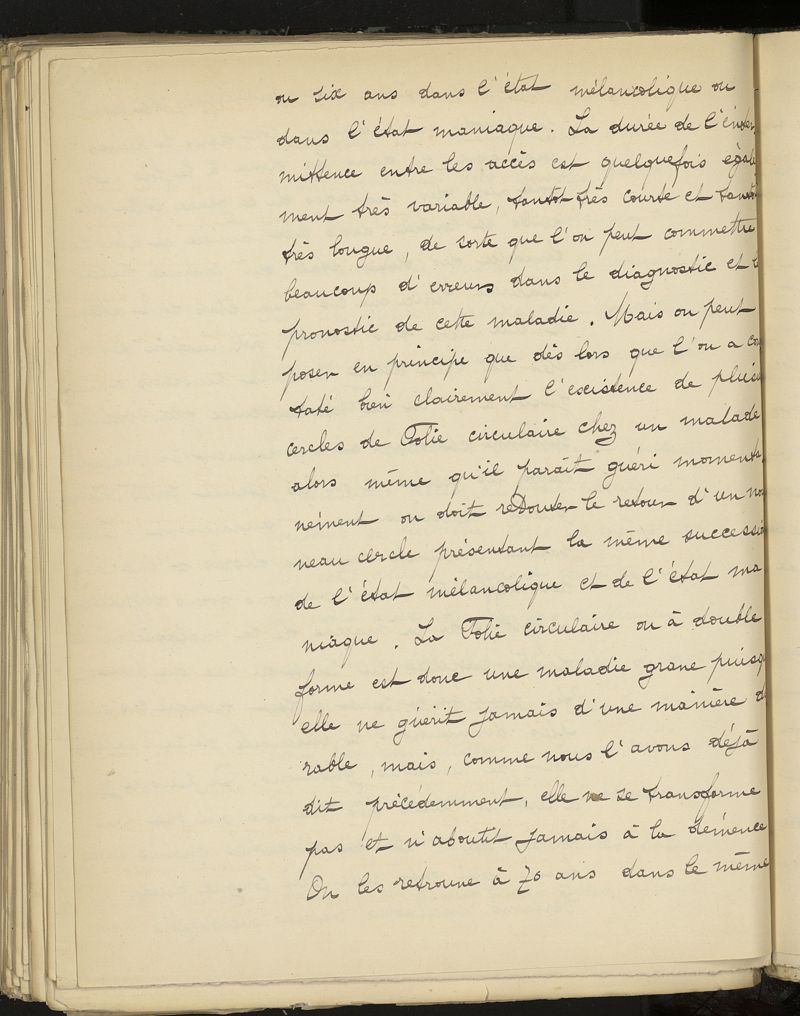 ou six ans dans l'état mélancolique ou
dans l'état maniaque. La durée de l'inter
mittence entre les accès est quelquefois égale
ment très variable, tantôt très courte et tantôt
très longue, de sorte que l'on peut commettre
beaucoup d'erreurs dans le diagnostic et le
pronostic de cette maladie. Mais on peut
poser en principe que dès lors que l'on a cons
taté bien clairement l'existence de plusieurs
cercles de Folie circulaire chez un malade
alors même qu'il paraît guéri momenta
nément on doit redouter le retour d'un nou
veau cercle présentant la même succession
de l'état mélancolique et de l'état ma
niaque. La Folie circulaire ou à double
forme est donc une maladie grave puisqu
elle ne guérit jamais d'une manière du
rable, mais, comme nous l'avons déjà
dit précédemment, elle ne se transforme
pas et n'aboutit jamais à la démence
On les retrouve à 70 ans dans le même